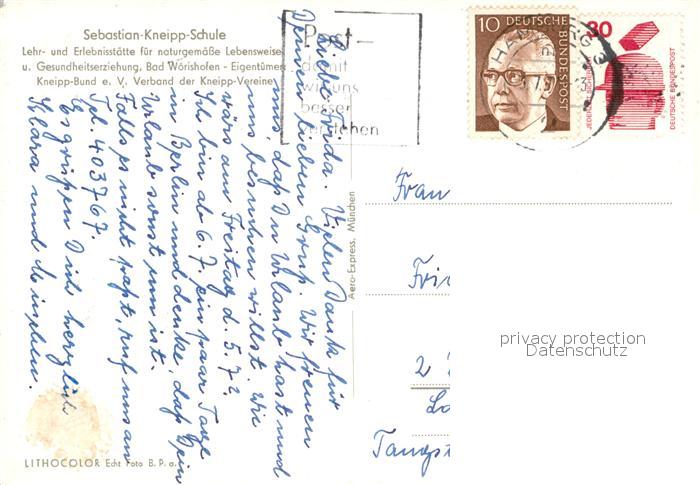 Sebastian-Kneipp-Schule
Lehr- und Erlebnisstätte für naturgemäße Lebensweise
u. Gesundheitserziehung, Bad Wörishofen - Eigentümer:
Kneipp-Bund e. V. Verband der Kneipp-Vereine
Post –
damit
wir uns
besser
verstehen
10 DEUTSCHE BUNDESPOST
30
DEUTSCHE BUNDESPOST
Liebe Frida. Vielen Dank für
Deinen lieben Gruß. Wir freuen
uns, daß Du Urlaub hast und
uns besuchen willst. Wie
wärs am Freitag d. 5.7?
Ich bin ab 6.7. ein paar Tage
in Berlin und denke, daß Dein
Urlaub sonst um ist.
Falls es nicht paßt, ruf uns an
Tel. 403767.
Es grüßen Dich herzlich
Klara und
Aero-Express, München
Frau
2
Tangst
privacy protection
Datenschutz
LITHOCOLOR Echt Foto B. P. a.